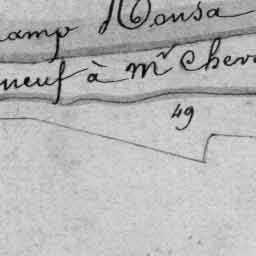 amp Nousa
neuf à mr Chev
49